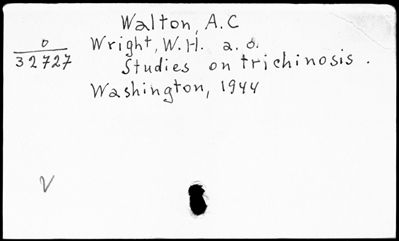 Walton, A.C
o
32727
Wright, W.H. a.o.
Studies on trichinosis.
Washington, 1944
V